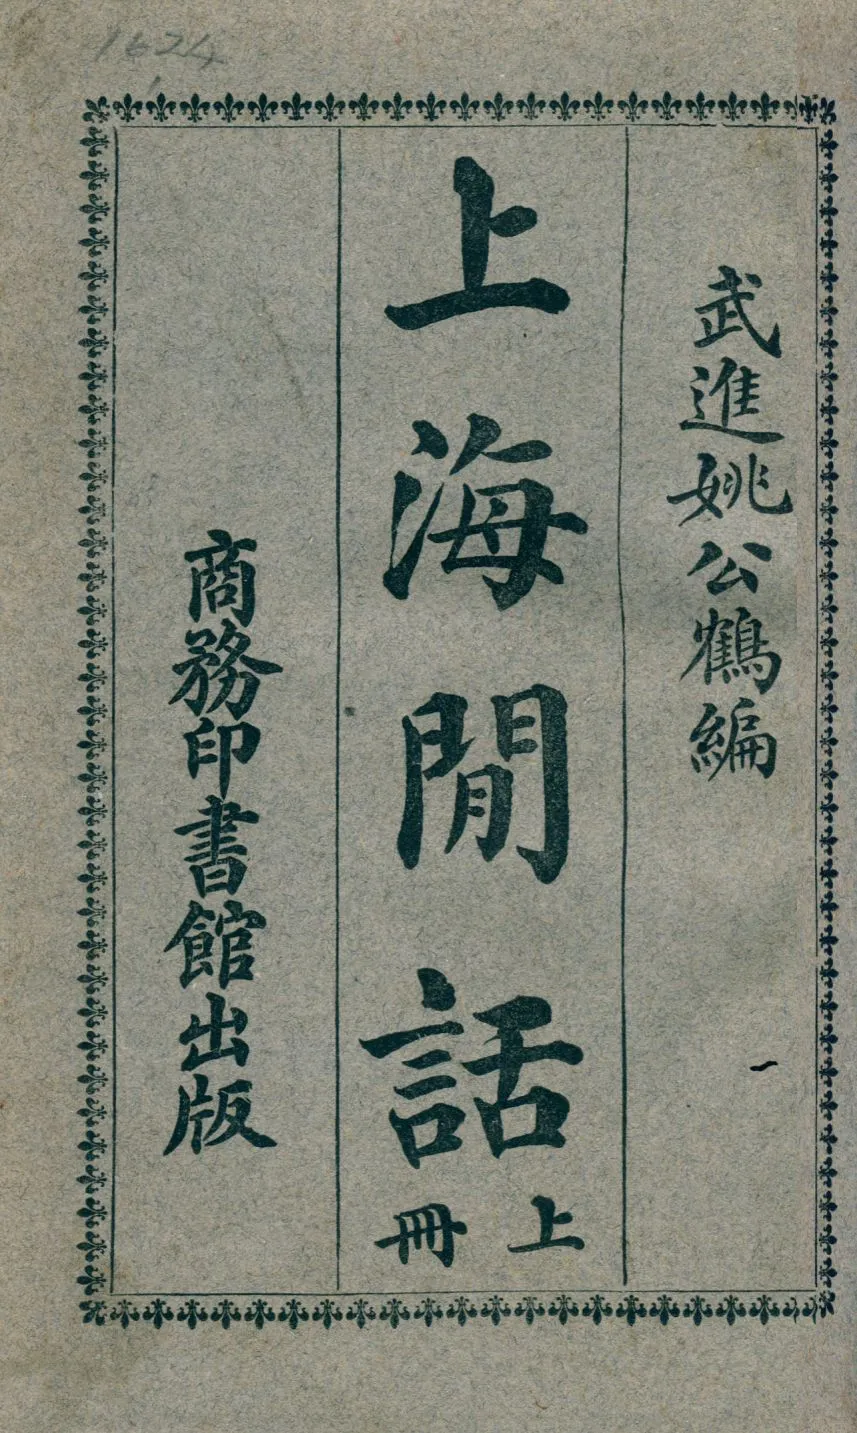 武進姚公鶴編
上海閒話
上冊
商務印書館出版
1624